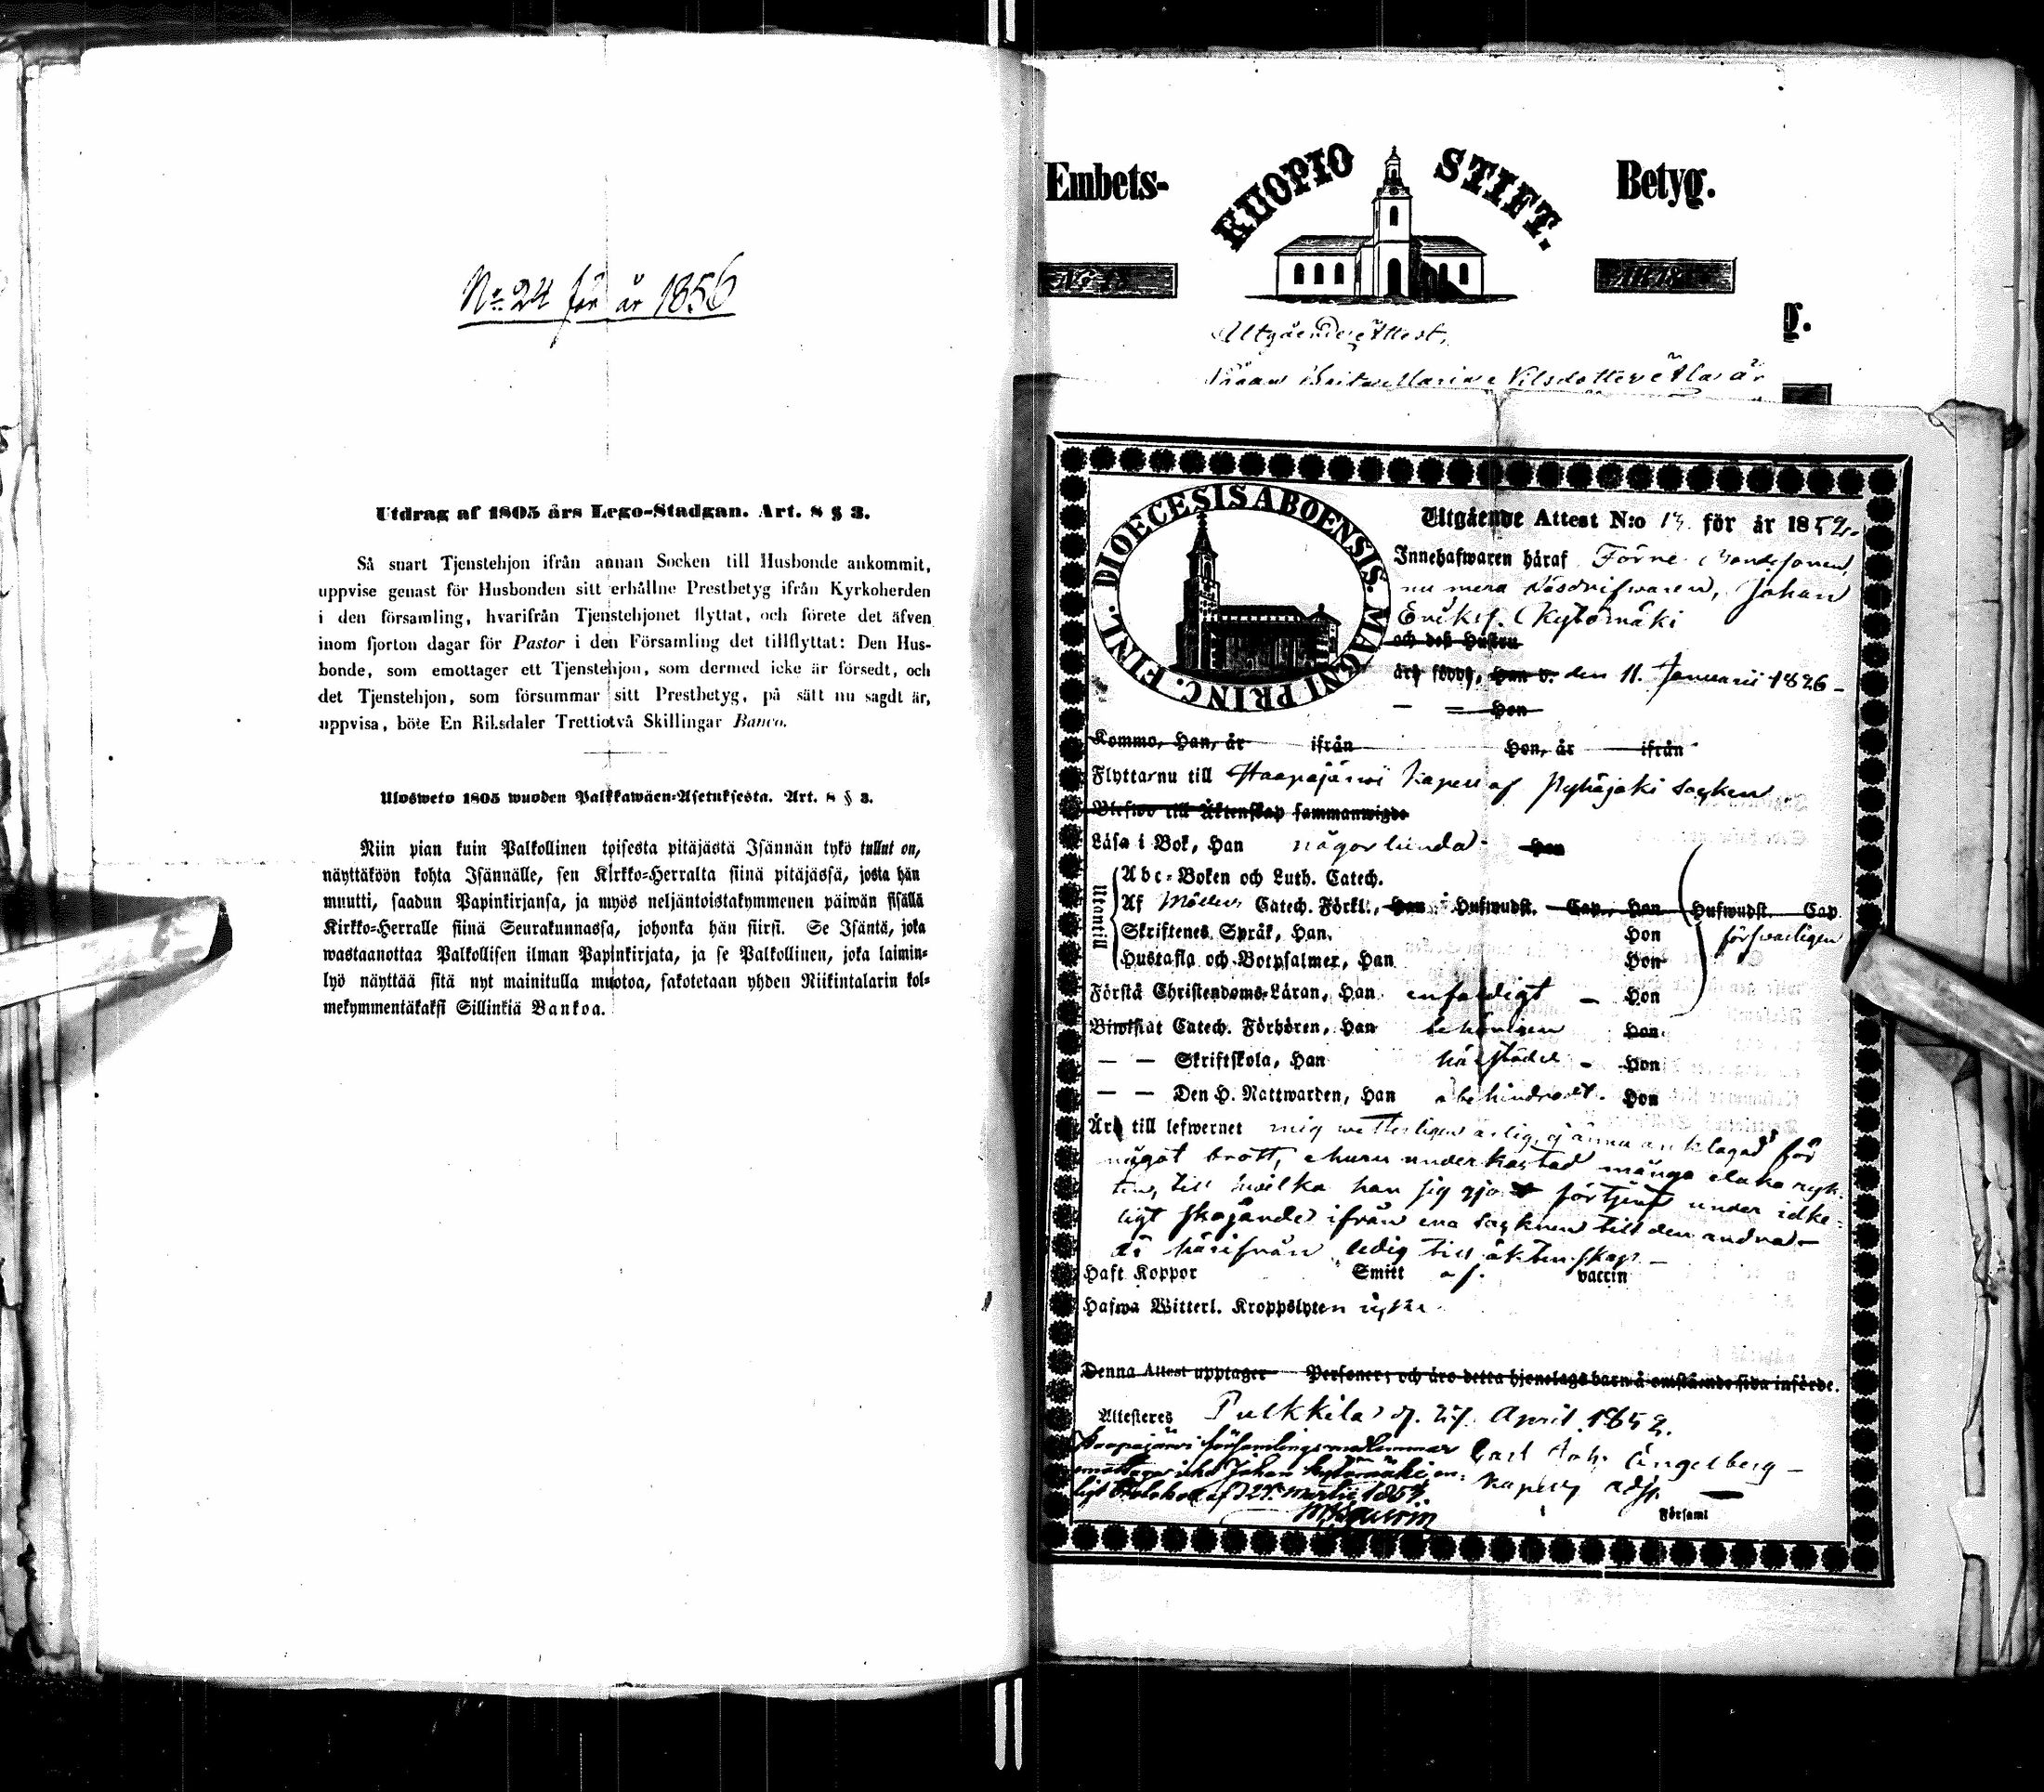 No 24 för år 1856
Utdrag af 1805 års Lego-Stadgan. Art. 8 § 3.
Så snart Tjenstehjon ifrån annan Socken till Husbonde ankommit,
uppvise genast för Husbonden sitt erhållne Prestbetyg ifrån Kyrkoherden
i den församling, hvarifrån Tjenstehjonet flyttat, och förete det äfven
inom fjorton dagar för Pastor i den Församling det tillflyttat: Den Hus-
bonde, som emottager ett Tjenstehjon, som dermed icke är försedt, och
det Tjenstehjon, som försummar sitt Prestbetyg, på sätt nu sagdt är,
uppvisa, böte En Riksdaler Trettiotvå Skillingar Banco.
Ulosweto 1805 wuoden Palkkawäen-Asetuksesta. Art. 8 § 3.
Niin pian kuin Palkollinen toisesta pitäjästä Isännän tykö tullut on,
näyttäköön kohta Isännälle, sen Kirkko-Herralta siinä pitäjässä, josta hän
muutti, saadun Papinkirjansa, ja myös neljäntoistakymmenen päiwän sisällä
Kirkko-Herralle siinä Seurakunnassa, johonka hän siirsi. Se Isäntä, joka
wastaanottaa Palkollisen ilman Papinkirjata, ja se Palkollinen, joka laimin-
lyö näyttää sitä nyt mainitulla muotoa, sakotetaan yhden Riikintalarin kol-
mekymmentäkaksi Sillinkiä Bankoa.
Embets- KUOPIO STIFT. Betyg.
g.
Utgående Attest,
Maria Nilsdotter är
DIOECESIS ABOENSIS. MAGNI PRINC. FINL.
Utgående Attest N:o 13 för år 1852.
Innehafwaren håraf Förne Bondesonen,
nu mera Johan
Eriksf. Kytömäki
och deß Hustru
äro födde, Han d. den 11. Januarii 1826 -
— = Hon
Kommo, Han, år ifrån Hon, år ifrån
Flyttar nu till Haapajärvi Kapell af Pyhäjoki Socken
Blefwo till Äktenskap sammanwigde
Läsa i Bok, Han någorlunda - Hon
Utantill
Abc-Boken och Luth. Catech.
Af Möllers Catech. Förkl., Han Hufwudst. Cap. Han Hufwudst. Cap.
Skriftenes Språk, Han Hon försvarligen
Hustafla och Botpsalmer, Han Hon
Förstå Christendoms-Läran, Han enfaldigt — Hon
Biwistat Catech. Förhören, Han behörigen Hon
— — Skriftskola, Han härstädes - Hon
— — Den H. Nattwarden, Han obehindradt. Hon
Äro till lefwernet mig wetterligen ärlig, ej ännu anklagad för
något brott, ehuru underkastad många elaka ryk-
ten, till hwilka han sig gjort förtjent under idke-
ligt ifrån ena Socknen till den andra —
är härifrån ledig till äktenskap. —
Haft Koppor Smitt af vaccin
Hafwa Witterl. Kroppslyten
Denna Attest upptager Personer; och äro detta hjonelags barn å omstående sida införde.
Attesteres Pulkkila d. 27. April 1852.
Haapajärvi församlings medlemmar Carl Joh. Engelberg —
emottager icke Johan Kytömäki en- Kapell. adj.
ligt Protokoll af d 24 Martii 1854
Församl